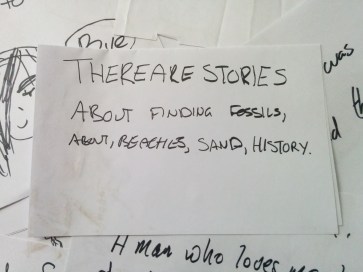 THERE ARE STORIES
ABOUT FINDING FOSSILS,
ABOUT, BEACHES, SAND, HISTORY.
was
A man who loves